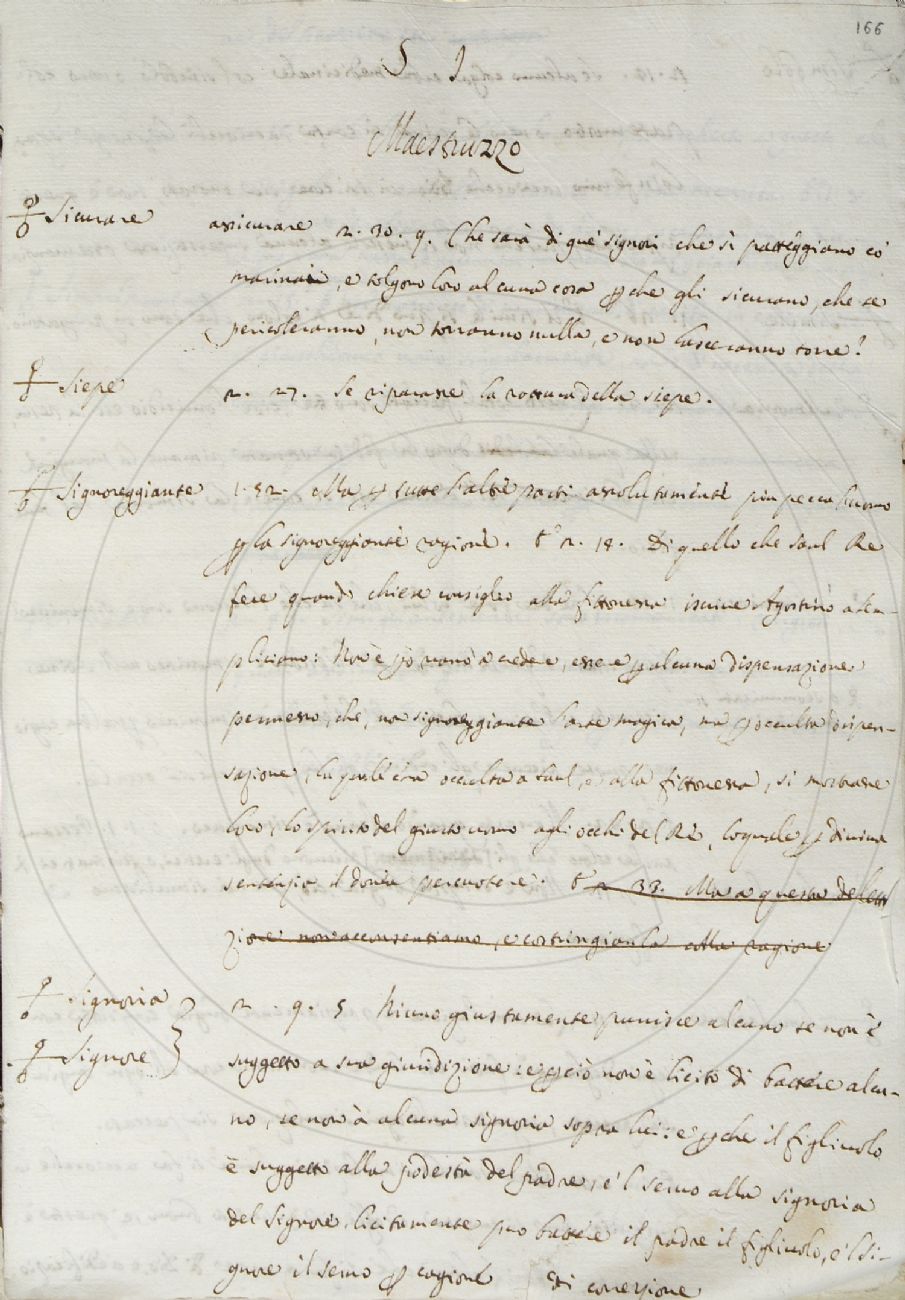 166
S I
Maestruzzo
Sicurare assicurare 2. 30. 9. Che sarà di que' signori che si patteggiano co'
marinai, e tolgono loro alcuna cosa pche gli sicurano, che se
pericoleranno, non torranno nulla, e non lasceranno torre?
Siepe 2. 27. Se riparasse la rottura della siepe.
Signoreggiante 1. 52. Ma p tutte l'altre parti assolutamente più pecca l'uomo
p la signoreggiante ragione. E 2. 18. Di quello che Saul Re
fece quando chiese consiglio alla fittonessa iscrive Agostino a Sem-
pliciano: Non è pò vano a credere, essere p alcuna dispensazione
permesso, che, non signoreggiante l'arte magica, ma p occulta dispen-
sazione, la quale era occulta a Saul, e alla fittonessa, si mostrasse
loro, lo spirito del giusto uomo agli occhi del Re, loquale p divina
sentenzia il dovia percuotere. E 2 33. Ma a questa delett
zione non acconsentiamo, e costringianla colla ragione
Signoria 2. 9. 5 Niuno giustamente punisce alcuno se non è
Signore suggetto a sua giuridizione: e pciò non è licito di battere alcu-
no, se non à alcuna signoria sopra lui: e pche il figliuolo
è suggetto alla podestà del padre, e 'l servo alla signoria
del Signore, licitamente può battere il padre il figliuolo, e 'l Si-
gnore il servo p cagione di correzione